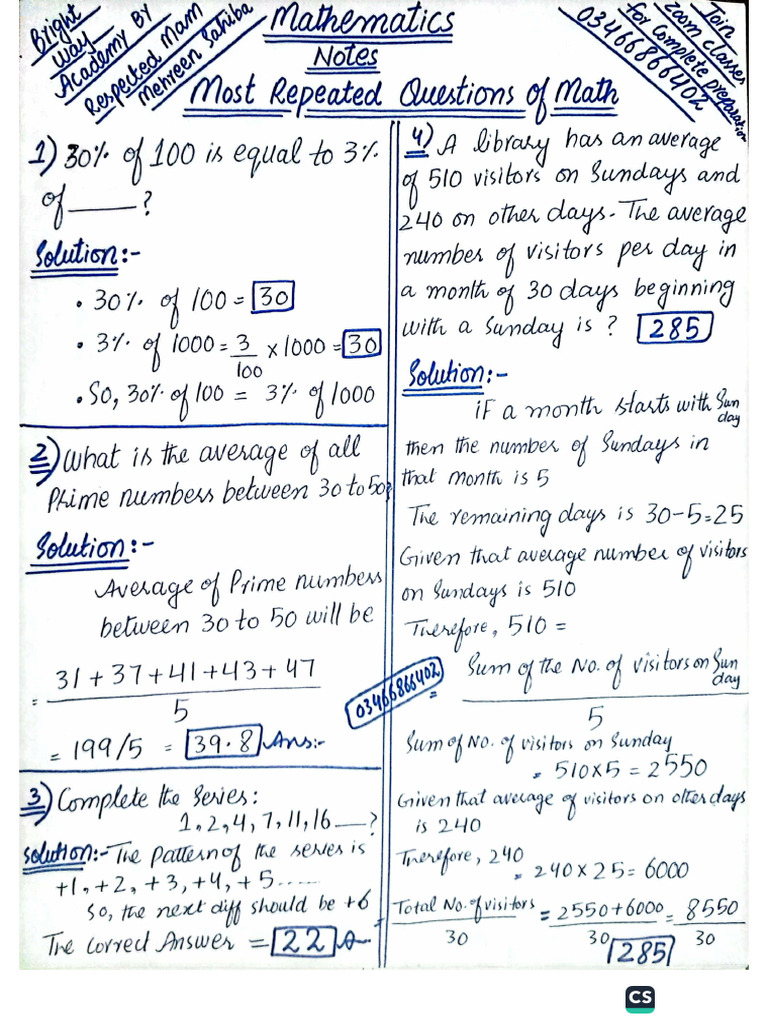 Bright
Way
Academy By
Respected Mam
Mehreen Sahiba
Mathematics
Notes
Most Repeated Questions of Math
Join
zoom classes
for complete preparation
03466866402
1) 30% of 100 is equal to 3%
of ____ ?
Solution:-
• 30% of 100 = 30
• 3% of 1000 = 3/100 x 1000 = 30
• So, 30% of 100 = 3% of 1000
2) What is the average of all
Prime numbers between 30 to 50?
Solution:-
Average of Prime numbers
between 30 to 50 will be
= 31+37+41+43+47
5
= 199/5 = 39.8 Ans:-
3) Complete the series:
1, 2, 4, 7, 11, 16 __ ?
Solution:- The pattern of the series is
+1, +2, +3, +4, +5 ......
So, the next diff should be +6
The correct Answer = 22 A
4) A library has an average
of 510 visitors on Sundays and
240 on other days. The average
number of visitors per day in
a month of 30 days beginning
with a Sunday is ? 285
Solution:-
if a month starts with Sunday
then the number of Sundays in
that month is 5
The remaining days is 30-5=25
Given that average number of visitors
on Sundays is 510
Therefore, 510 =
= Sum of the No. of visitors on Sunday
5
03466866402
Sum of No. of visitors on Sunday
= 510x5 = 2550
Given that average of visitors on other days
is 240
Therefore, 240
= 240 x 25 = 6000
Total No. of visitors = 2550+6000 = 8550
30 30 30
= 285
CS